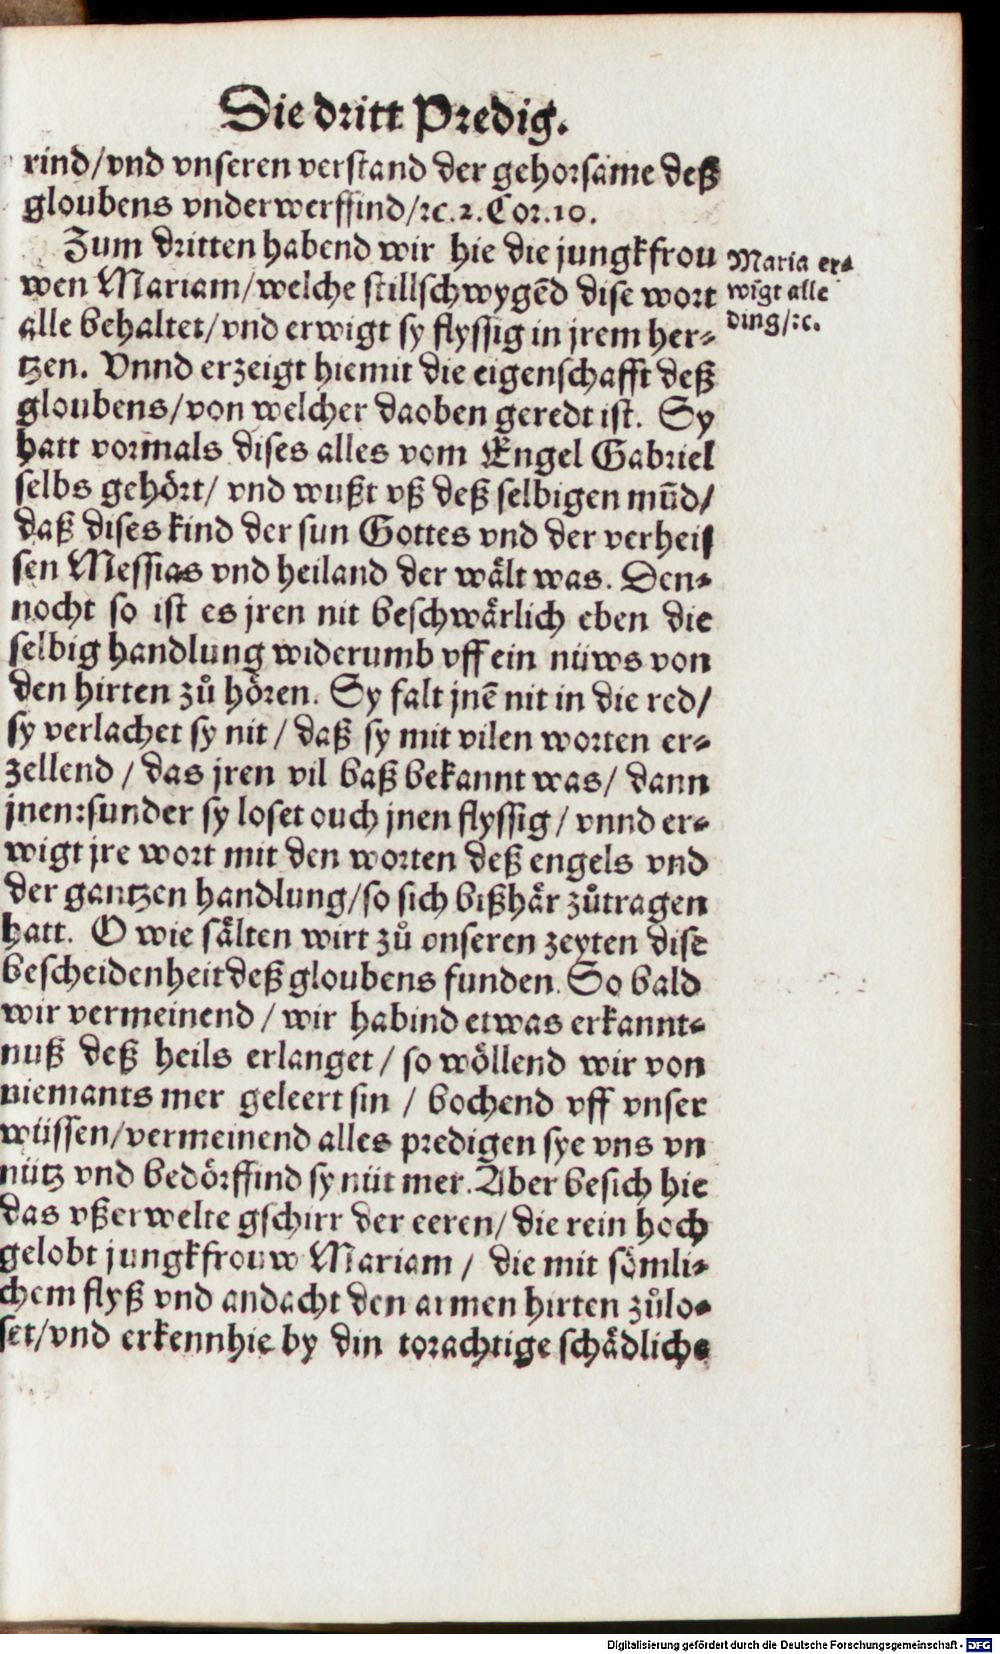 Die dritt Predig.
rind/vnd vnseren verstand der gehorsame deß
gloubens vnderwerffind/ꝛc.2.Cor.10.
Zum dritten habend wir hie die jungkfrou
wen Mariam/welche stillschwygēd dise wort
alle behaltet/vnd erwigt sy flyssig in jrem her-
tzen. Vnnd erzeigt hiemit die eigenschafft deß
gloubens/von welcher daoben geredt ist. Sy
hatt vormals dises alles vom Engel Gabriel
selbs gehört/ vnd wußt vß deß selbigen mūd/
daß dises kind der sun Gottes vnd der verheis
sen Messias vnd heiland der wält was. Den-
nocht so ist es jren nit beschwärlich eben die
selbig handlung widerumb vff ein nüws von
den hirten zů hören. Sy falt jnē nit in die red/
sy verlachet sy nit / daß sy mit vilen worten er-
zellend / das jren vil baß bekannt was/ dann
jnen:sunder sy loset ouch jnen flyssig / vnnd er-
wigt jre wort mit den worten deß engels vnd
der gantzen handlung/so sich bißhär zůtragen
hatt. O wie sälten wirt zů vnseren zeyten dise
bescheidenheit deß gloubens funden. So bald
wir vermeinend / wir habind etwas erkannt-
nuß deß heils erlanget / so wöllend wir von
niemants mer geleert sin / bochend vff vnser
wüssen/vermeinend alles predigen sye vns vn
nütz vnd bedörffind sy nüt mer. Aber besich hie
das vßerwelte gschirr der eeren/ die rein hoch
gelobt jungkfrouw Mariam / die mit sömli-
chem flyß vnd andacht den armen hirten zůlo-
set/vnd erkenn hie by din torachtige schädliche
Maria er-
wigt alle
ding/ꝛc.
Digitalisierung gefördert durch die Deutsche Forschungsgemeinschaft - DFG